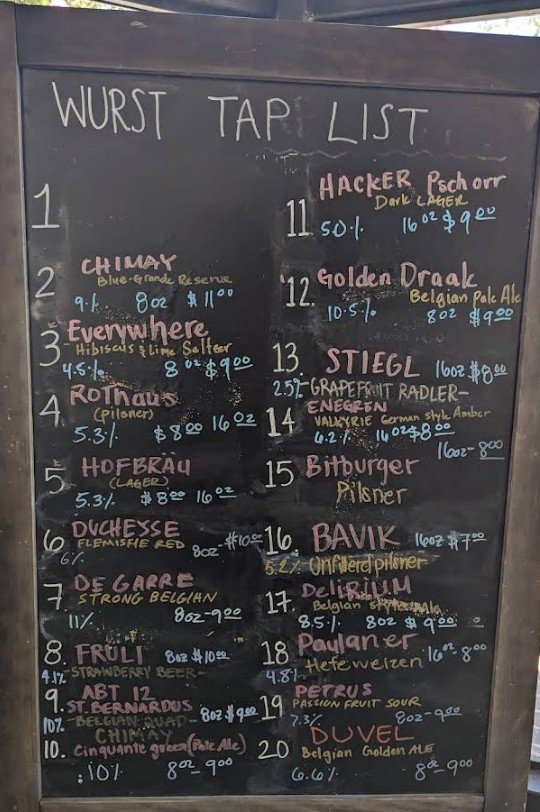 WURST TAP LIST
1
2 CHIMAY
Blue-Grande Reserve
9% 8oz $11⁰⁰
3 Everywhere
Hibiscus & Lime Seltzer
4.5% 8oz $9⁰⁰
4 Rothaus
(Pilsner)
5.3% $8⁰⁰ 16oz
5 HOFBRÄU
(LAGER)
5.3% $8⁰⁰ 16oz
6 DUCHESSE
FLEMISHE RED
6% 8oz-$10⁰⁰
7 DE GARRE
STRONG BELGIAN
11% 8oz-9⁰⁰
8 FRÜLI 8oz $10⁰⁰
4.1% -STRAWBERRY BEER-
9. ABT 12
ST. BERNARDUS
10% -BELGIAN QUAD- 8oz $9⁰⁰
CHIMAY
10. Cinquante (Pale Ale)
10% 8oz 9⁰⁰
11 HACKER Pschorr
Dark LAGER
5.0% 16oz $9⁰⁰
12. Golden Draak
Belgian Pale Ale
10.5% 8oz $9⁰⁰
13. STIEGL 16oz $8⁰⁰
2.5% -GRAPEFRUIT RADLER-
14 ENEGREN
VALKYRIE German style Amber
6.2% 16oz $8⁰⁰
16oz-8⁰⁰
15 Bitburger
Pilsner
16 BAVIK 16oz $7⁰⁰
5.2% Unfiltered pilsner
17. DeliRIUM
Belgian style
8.5% 8oz $9⁰⁰
18 Paulaner 16oz 8⁰⁰
4.8% Hefeweizen
19 PETRUS
PASSION FRUIT SOUR
7.3% 8oz-9⁰⁰
20 DUVEL
Belgian Golden ALE
6.6% 8oz-9⁰⁰